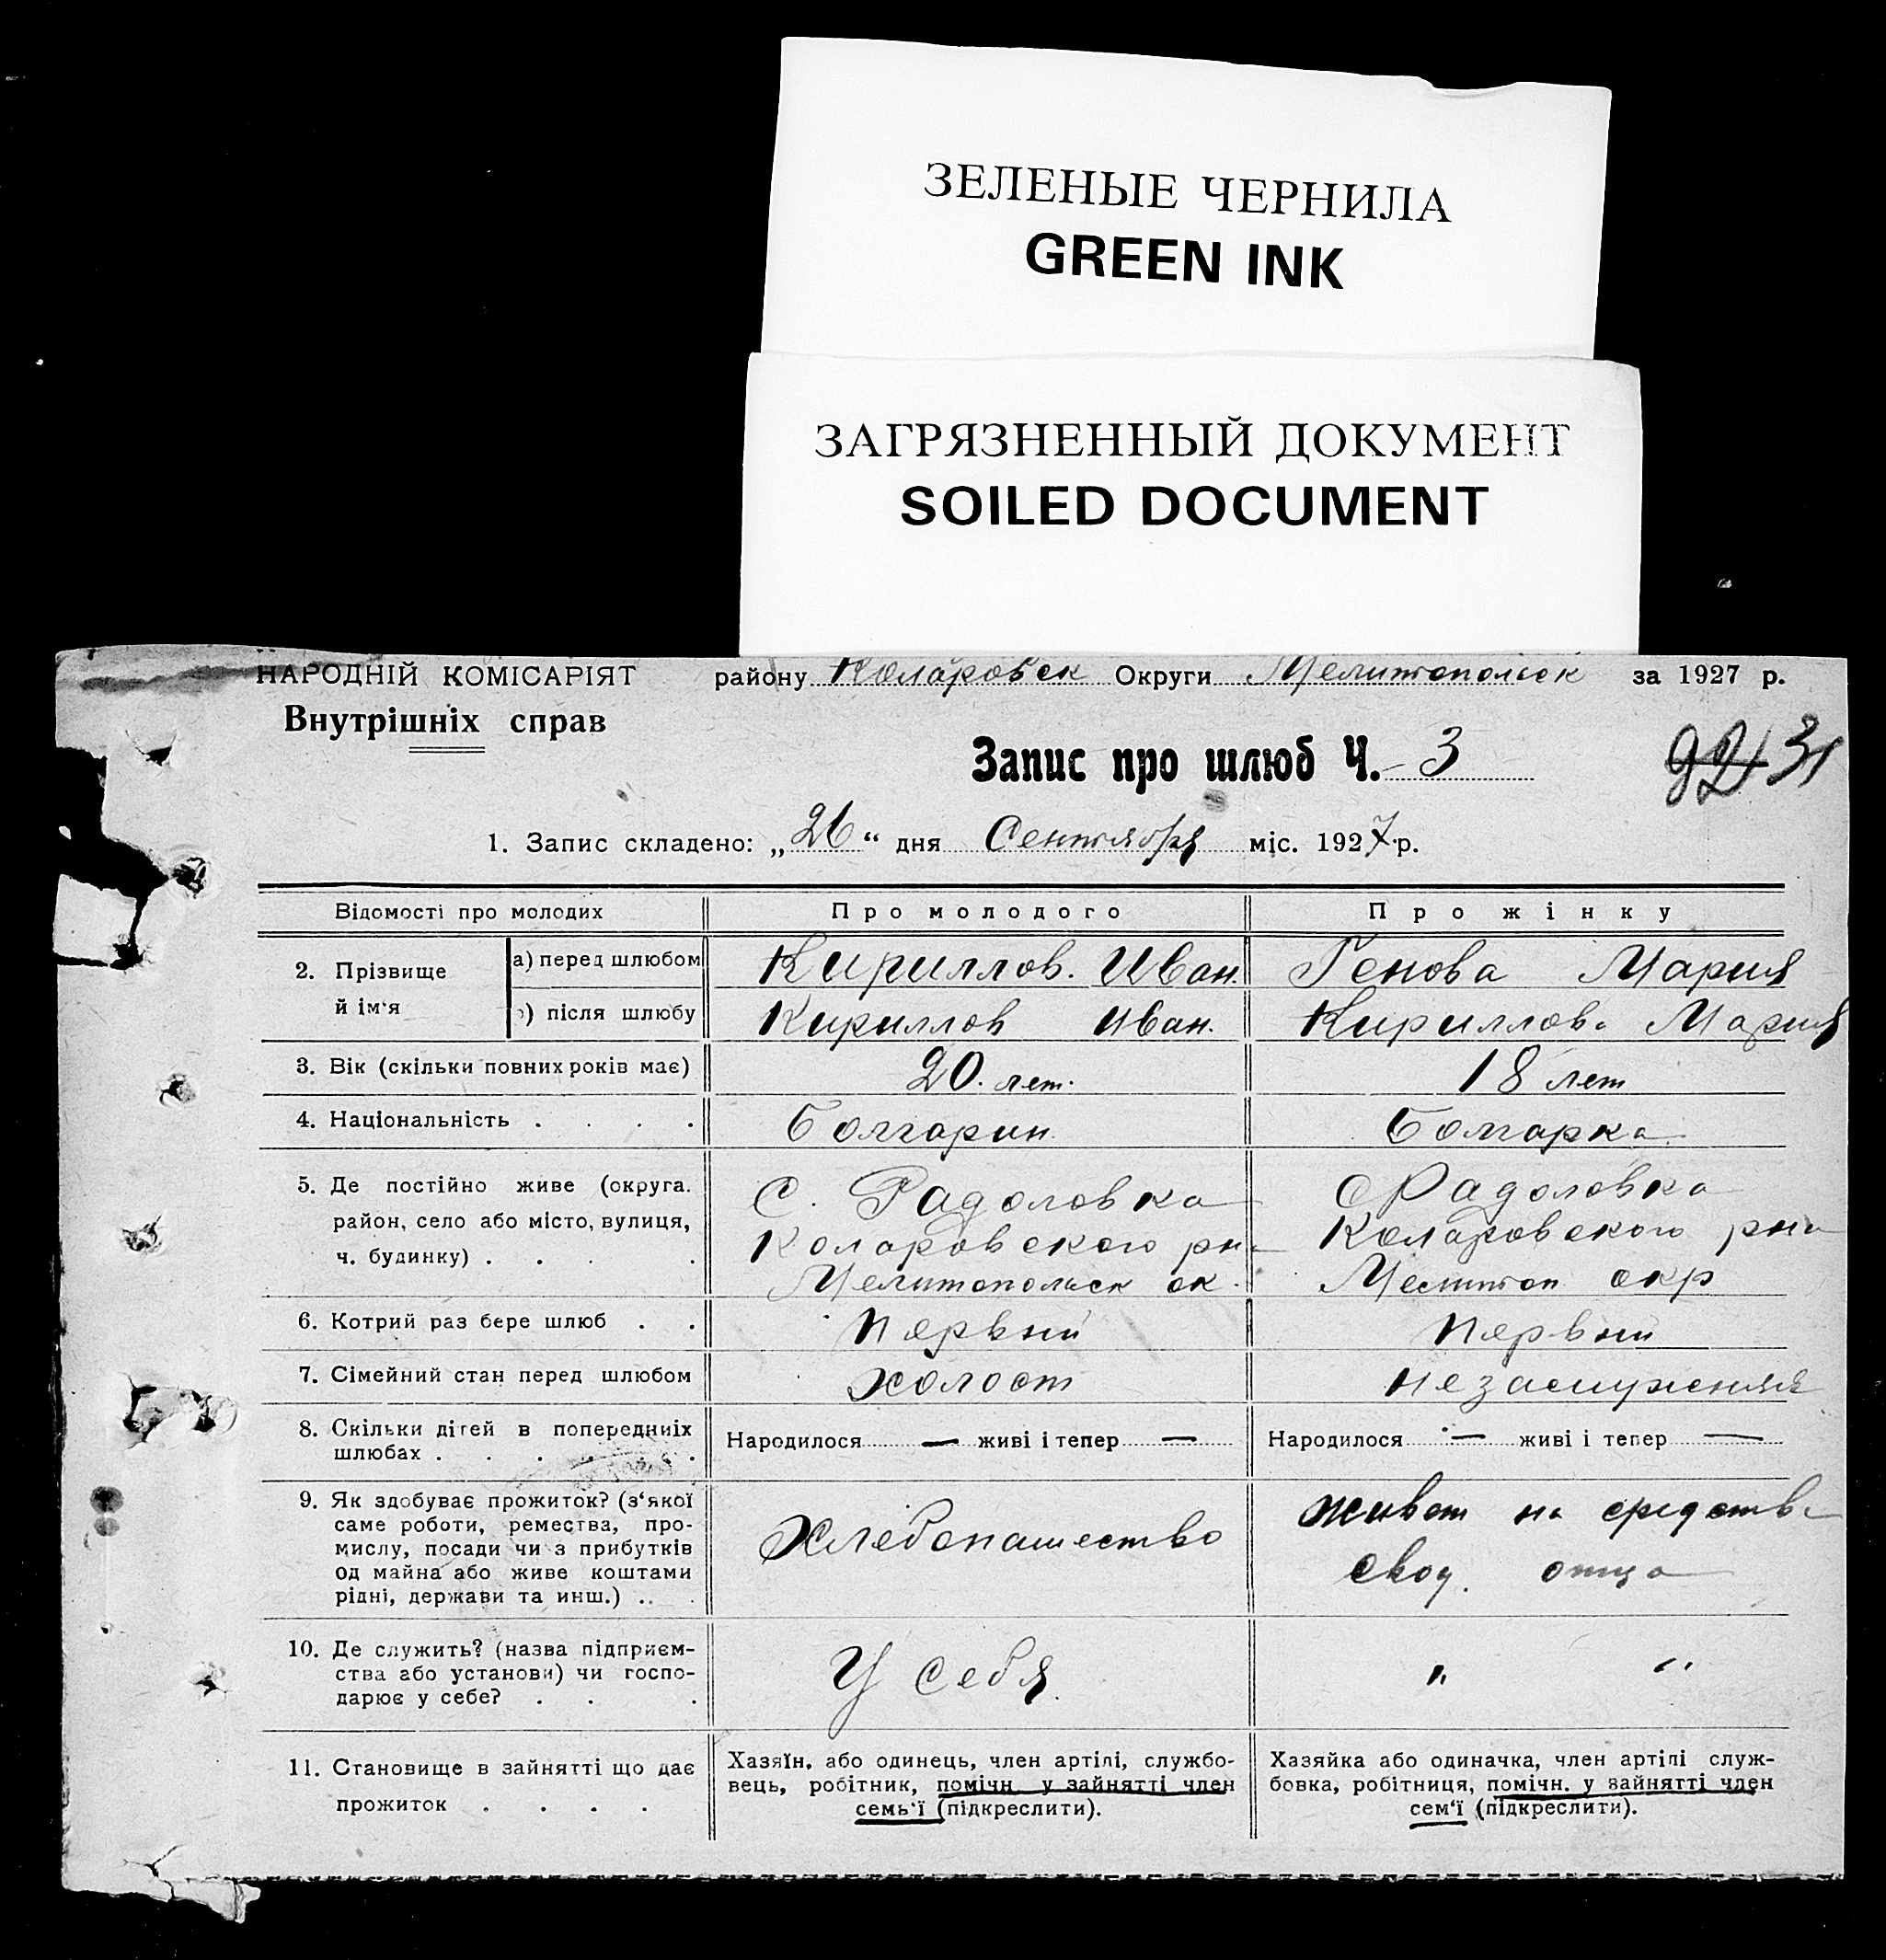 ЗЕЛЕНЫЕ ЧЕРНИЛА
GREEN INK
ЗАГРЯЗНЕННЫЙ ДОКУМЕНТ
SOILED DOCUMENT
НАРОДНІЙ КОМІСАРІЯТ району Коларовск Округи Мелитопольск за 1927 р.
Внутрішніх справ
Запис про шлюб Ч. 3
92 31
1. Запис складено: „26“ дня Сентября міс. 1927 р.
Відомості про молодих Про молодого Про жінку
2. Прізвище й ім'я
а) перед шлюбом Кириллов. Иван. Генова Мария
) після шлюбу Кириллов Иван. Кириллова Мария
3. Вік (скільки повних років має) 20. лет. 18 лет
4. Національність . . . . Болгарин Болгарка
5. Де постійно живе (округа. район, село або місто, вулиця, ч. будинку) . . . .
С. Радоловка
Коларовского рна
Мелитопольск ок.
С Радоловка
Коларовского рна
Мелитоп окр
6. Котрий раз бере шлюб . . Первый Первый
7. Сімейний стан перед шлюбом холост незамужняя
8. Скільки дітей в попередниіх шлюбах . . . . . .
Народилося — живі і тепер —
Народилося — живі і тепер —
9. Як здобуває прожиток? (з'якої
саме роботи, ремества, про-
мислу, посади чи з прибутків
од майна або живе коштами
рідні, держави та инш.) ..
Хлебопашество
живет на средства
отца
10. Де служить? (назва підприєм-
ства або установи) чи госпо-
дарює у себе? . . .
У себя.
" "
11. Становище в зайнятті що дає
прожиток . . . .
Хазяїн, або одинець, член артілі, службо-
вець, робітник, помічн. у зайнятті член
семь'ї (підкреслити).
Хазяйка або одиначка, член артілі служ-
бовка, робітниця, помічн. у зайнятті член
сем'ї (підкреслити).